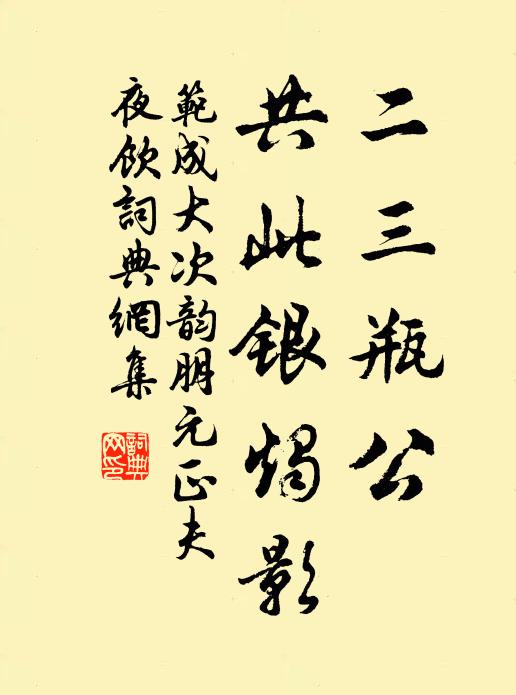 二三瓶公
共此银烛影
範成大次韵朋元正夫
夜饮詞典網集
詞典网印